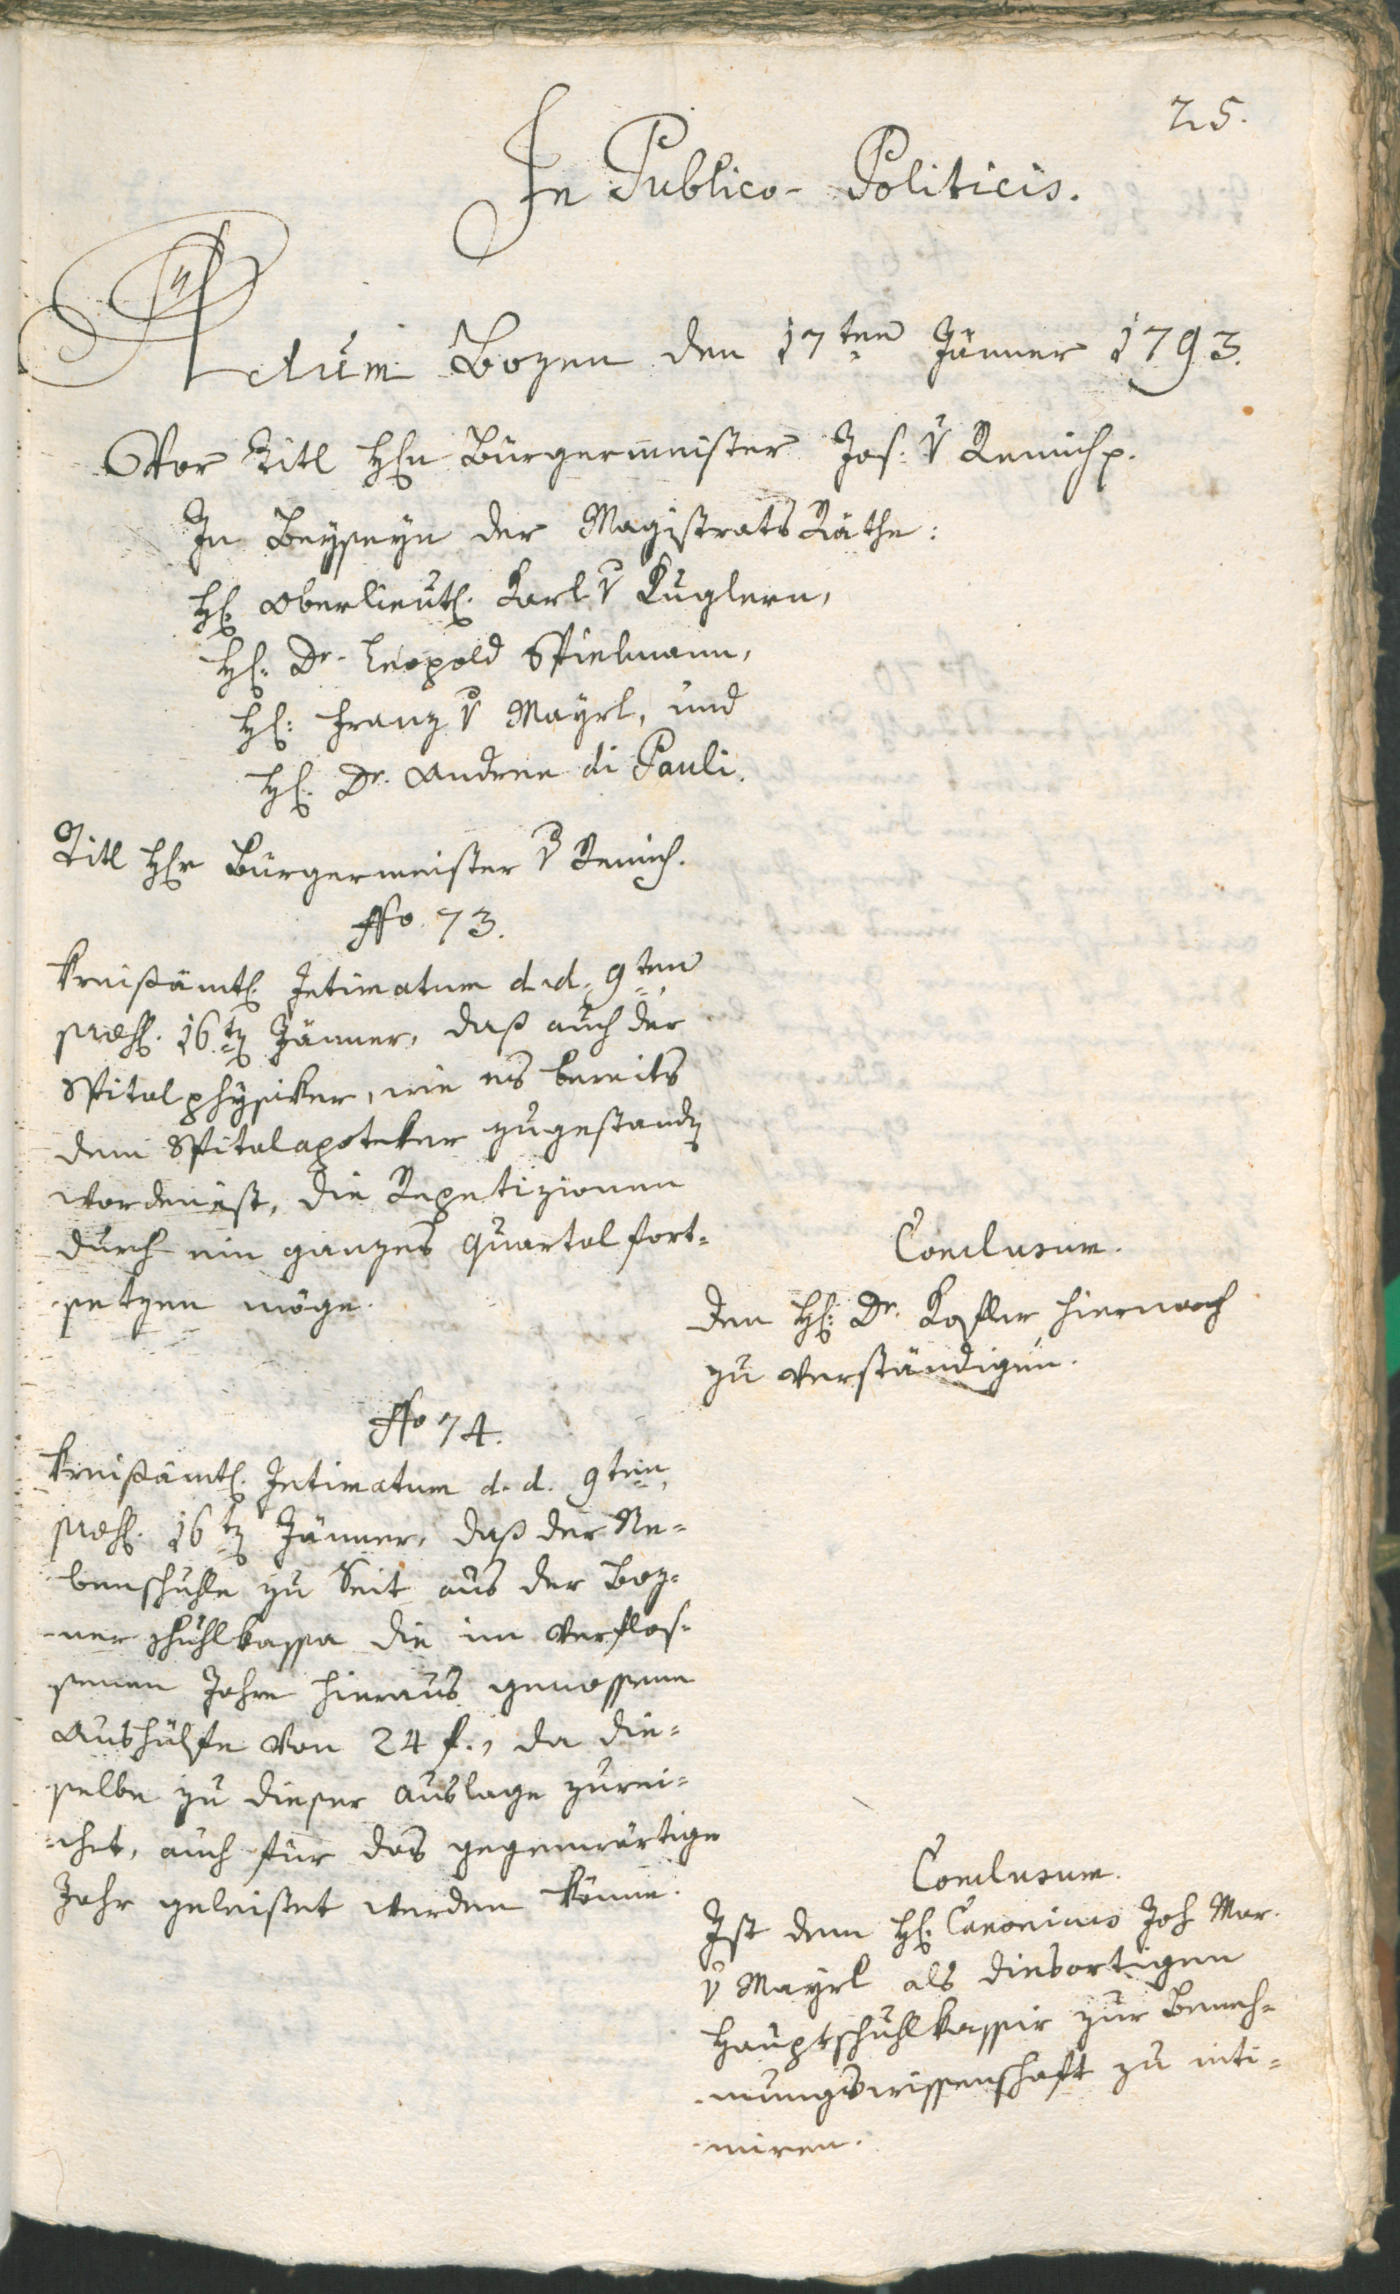 25.
In Publico-Politicis.
Actum Bozen den 17ten Jänner 1793.
Vor Titl Hℓn Bürgermeister Jos: v Remich p.
In Beyseyn der Magistrats Räthe:
H: Oberlieut: Karl v Kuglern,
H: Dr. Leopold Spielmann,
H: Franz v Mayrl, und
H: Dr. Andree di Pauli.
Titl Hℓr Bürgermeister v Remich.
No 73.
Kreißämtl. Intimatum d. d. 9ten,
præs. 16tn Jänner, daß auch der
Spitalphysiker, wie es bereits
dem Spitalapoteker zugestandn
worden ist, die Repetizionen
durch ein ganzes Quartal fort-
setzen möge.
Conclusum.
Den H: Dr. Kofler hiernach
zu verständigen.
No 74.
Kreißämtl. Intimatum d. d. 9ten,
præs. 16tn Jänner, daß der Ne-
benschuhle zu Seit aus der Boz-
ner Schuhlkassa die im verflos-
senen Jahre hieraus genossene
Aushülfe von 24 f., da die-
selbe zu dieser Auslage zurei-
chet, auch für das gegenwärtige
Jahr geleistet werden könne.
Conclusum.
Ist dem H: Canonicus Joh Mar.
v Mayrl als diesortigen
Hauptschuhlkassir zur Beneh-
mungswissenschaft zu inti-
miren.